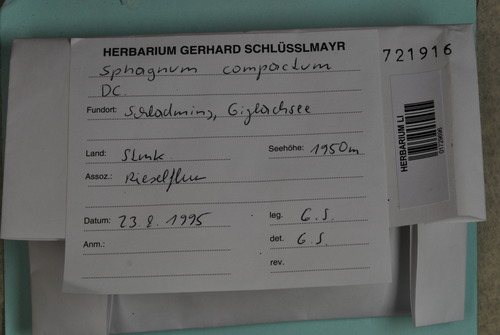 HERBARIUM GERHARD SCHLÜSSLMAYR
721916
Sphagnum compactum
DC.
Fundort: Schladming, Giglachsee
Land: Stmk. Seehöhe: 1950m
Assoz.: Rieselflur
Datum: 23 8. 1995 leg. G.S.
Anm.: det. G.S.
rev.
HERBARIUM LI